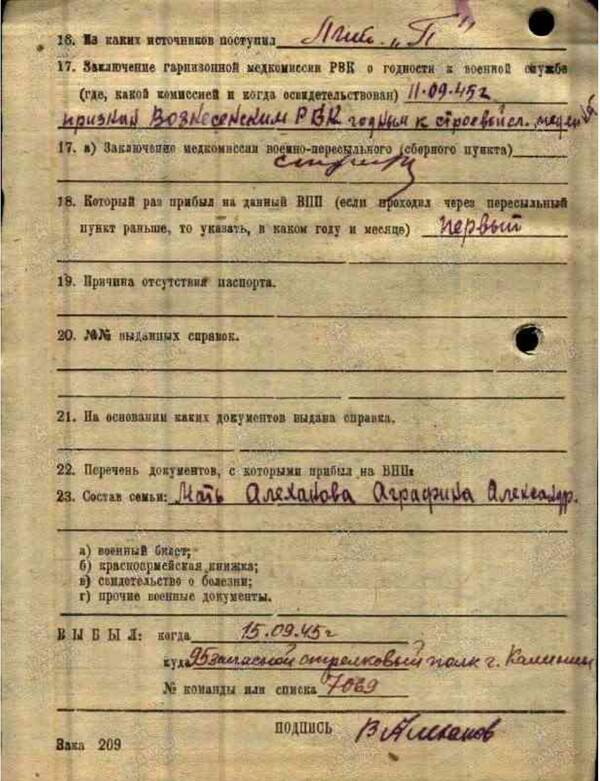 16. Из каких источников поступил „П"
17. Заключение гарнизонной медкомиссии РВК о годности к военной службе
(где, какой комиссией и когда освидетельствован) 11.09.45г
признан Вознесенским РВК годным к строевой сл.
17. а) Заключение медкомиссии военно-пересыльного (сборного пункта)
18. Который раз прибыл на данный ВПП (если проходил через пересыльный
пункт раньше, то указать, в каком году и месяце) первый
19. Причина отсутствия паспорта.
20. №№ выданных справок.
21. На основании каких документов выдана справка.
22. Перечень документов, с которыми прибыл на ВПП:
23. Состав семьи: Мать Алеханова Аграфина Александр.
а) военный билет;
б) красноармейская книжка;
в) свидетельство о болезни;
г) прочие военные документы.
ВЫБЫЛ: когда 15.09.45г
куда 95 запасной стрелковый полк г. Калинин
№ команды или списка 7069
ПОДПИСЬ ВАлеханов
Зака 209